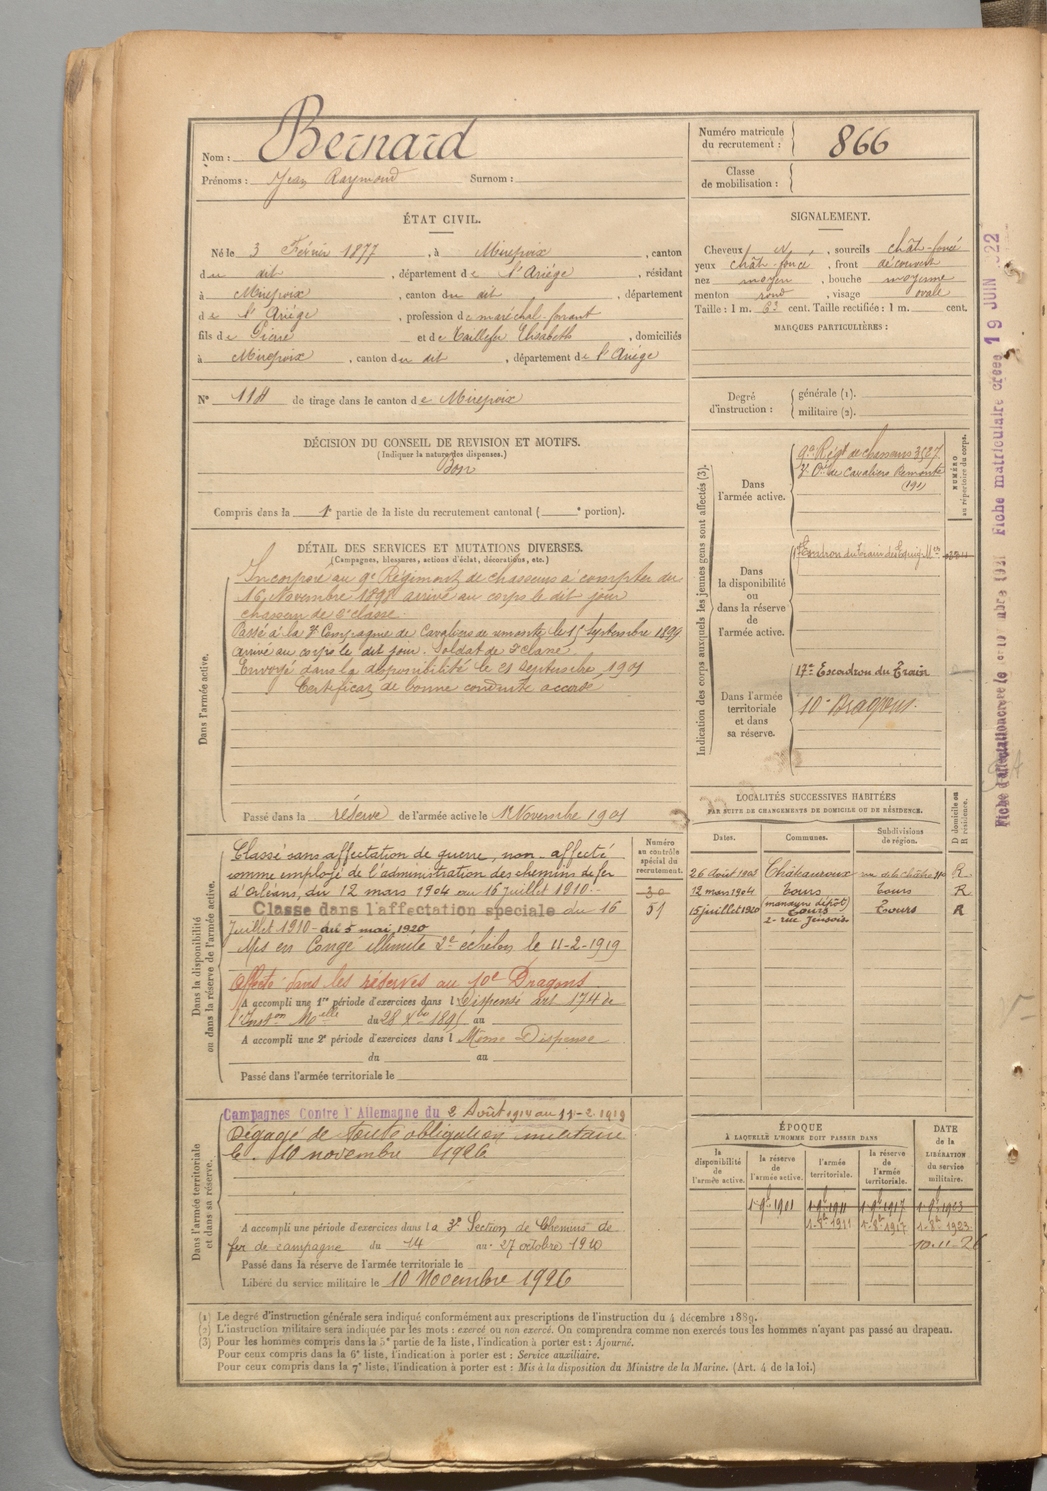 Nom : Bernard
Prénoms : Jean Raymond Surnom :
Numéro matricule du recrutement : 866
Classe de mobilisation :
ÉTAT CIVIL.
Né le 3 Février 1877, à Mirepoix, canton
du dit, département de l'Ariège, résidant
à Mirepoix, canton du dit, département
de l'Ariège, profession de maréchal ferrant
fils de Pierre et de Taillefer Elisabeth, domiciliés
à Mirepoix, canton du dit, département de l'Ariège
N° 118 de tirage dans le canton de Mirepoix
SIGNALEMENT.
Cheveux, sourcils chât-foncé
yeux chât-foncé, front découvert
nez moyen, bouche moyenne
menton rond, visage ovale
Taille : 1 m. cent. Taille rectifiée : 1 m. cent.
MARQUES PARTICULIÈRES :
Degré d'instruction : générale (1).
militaire (2).
DÉCISION DU CONSEIL DE REVISION ET MOTIFS.
(Indiquer la nature des dispenses.)
Bon
Compris dans la 1e partie de la liste du recrutement cantonal ( e portion).
DÉTAIL DES SERVICES ET MUTATIONS DIVERSES.
(Campagnes, blessures, actions d'éclat, décorations, etc.)
Dans l'armée active.
Incorporé au 9e Régiment de chasseurs à compter du
16 Novembre 1898 arrivé au corps le dit jour
chasseur de 2e classe.
Passé à la 7e Compagnie de Cavaliers de remonte le 15 Septembre 1899
arrivé au corps le dit jour. Soldat de 2e classe.
Envoyé dans la disponibilité le 21 Septembre 1901
Certificat de bonne conduite accordé
Passé dans la réserve de l'armée active le 1er Novembre 1901
Indication des corps auxquels les jeunes gens sont affectés (3).
NUMÉRO au répertoire du corps.
Dans l'armée active.
9e Régt de chasseurs 3527
7e Cie de Cavaliers Remonte
Dans la disponibilité ou dans la réserve de l'armée active.
Dans l'armée territoriale et dans sa réserve.
17e Escadron du Train
10e Dragons.
LOCALITÉS SUCCESSIVES HABITÉES
PAR SUITE DE CHANGEMENTS DE DOMICILE OU DE RÉSIDENCE.
Dates. Communes. Subdivisions de région. D domicile ou R résidence.
Châteauroux R
12 mars 1904 Tours Tours R
15 juillet 1920 Tours Tours R
Numéro au contrôle spécial du recrutement.
30
51
Dans la disponibilité ou dans la réserve de l'armée active.
Classé sans affectation de guerre, non-affecté
comme employé de l'administration des chemins de fer
d'Orléans, du 12 mars 1904 au 16 juillet 1910.
Classé dans l'affectation spéciale du 16
Juillet 1910 - du 5 mai 1920
Mis en Congé illimité 2e échelon le 11-2-1919
Affecté dans les réserves au 10e Dragons
A accompli une 1re période d'exercices dans l Dispensé art 174 de
l'Inston Melle du 28 Xbre 1895 au
A accompli une 2e période d'exercices dans l Même Dispense
du au
Passé dans l'armée territoriale le
Dans l'armée territoriale et dans sa réserve.
Campagnes Contre l'Allemagne du 2 Août 1914 au 11-2-1919
Dégagé de toute obligation militaire
le 10 novembre 1926
A accompli une période d'exercices dans la 3e Section de Chemins de
fer de campagne du 14 au 27 octobre 1910
Passé dans la réserve de l'armée territoriale le
Libéré du service militaire le 10 Novembre 1926
ÉPOQUE
À LAQUELLE L'HOMME DOIT PASSER DANS
la disponibilité de l'armée active. la réserve de l'armée active. l'armée territoriale. la réserve de l'armée territoriale.
DATE de la LIBÉRATION du service militaire.
1-9b 1901 1-9b 1911 1-9b 1917 1-9b 1923
1-8b 1911 1-8b 1917 1-8b 1923
10-11-26
(1) Le degré d'instruction générale sera indiqué conformément aux prescriptions de l'instruction du 4 décembre 1889.
(2) L'instruction militaire sera indiquée par les mots : exercé ou non exercé. On comprendra comme non exercés tous les hommes n'ayant pas passé au drapeau.
(3) Pour les hommes compris dans la 5e partie de la liste, l'indication à porter est : Ajourné.
Pour ceux compris dans la 6e liste, l'indication à porter est : Service auxiliaire.
Pour ceux compris dans la 7e liste, l'indication à porter est : Mis à la disposition du Ministre de la Marine. (Art. 4 de la loi.)
Fiche matriculaire créée 19 JUIN